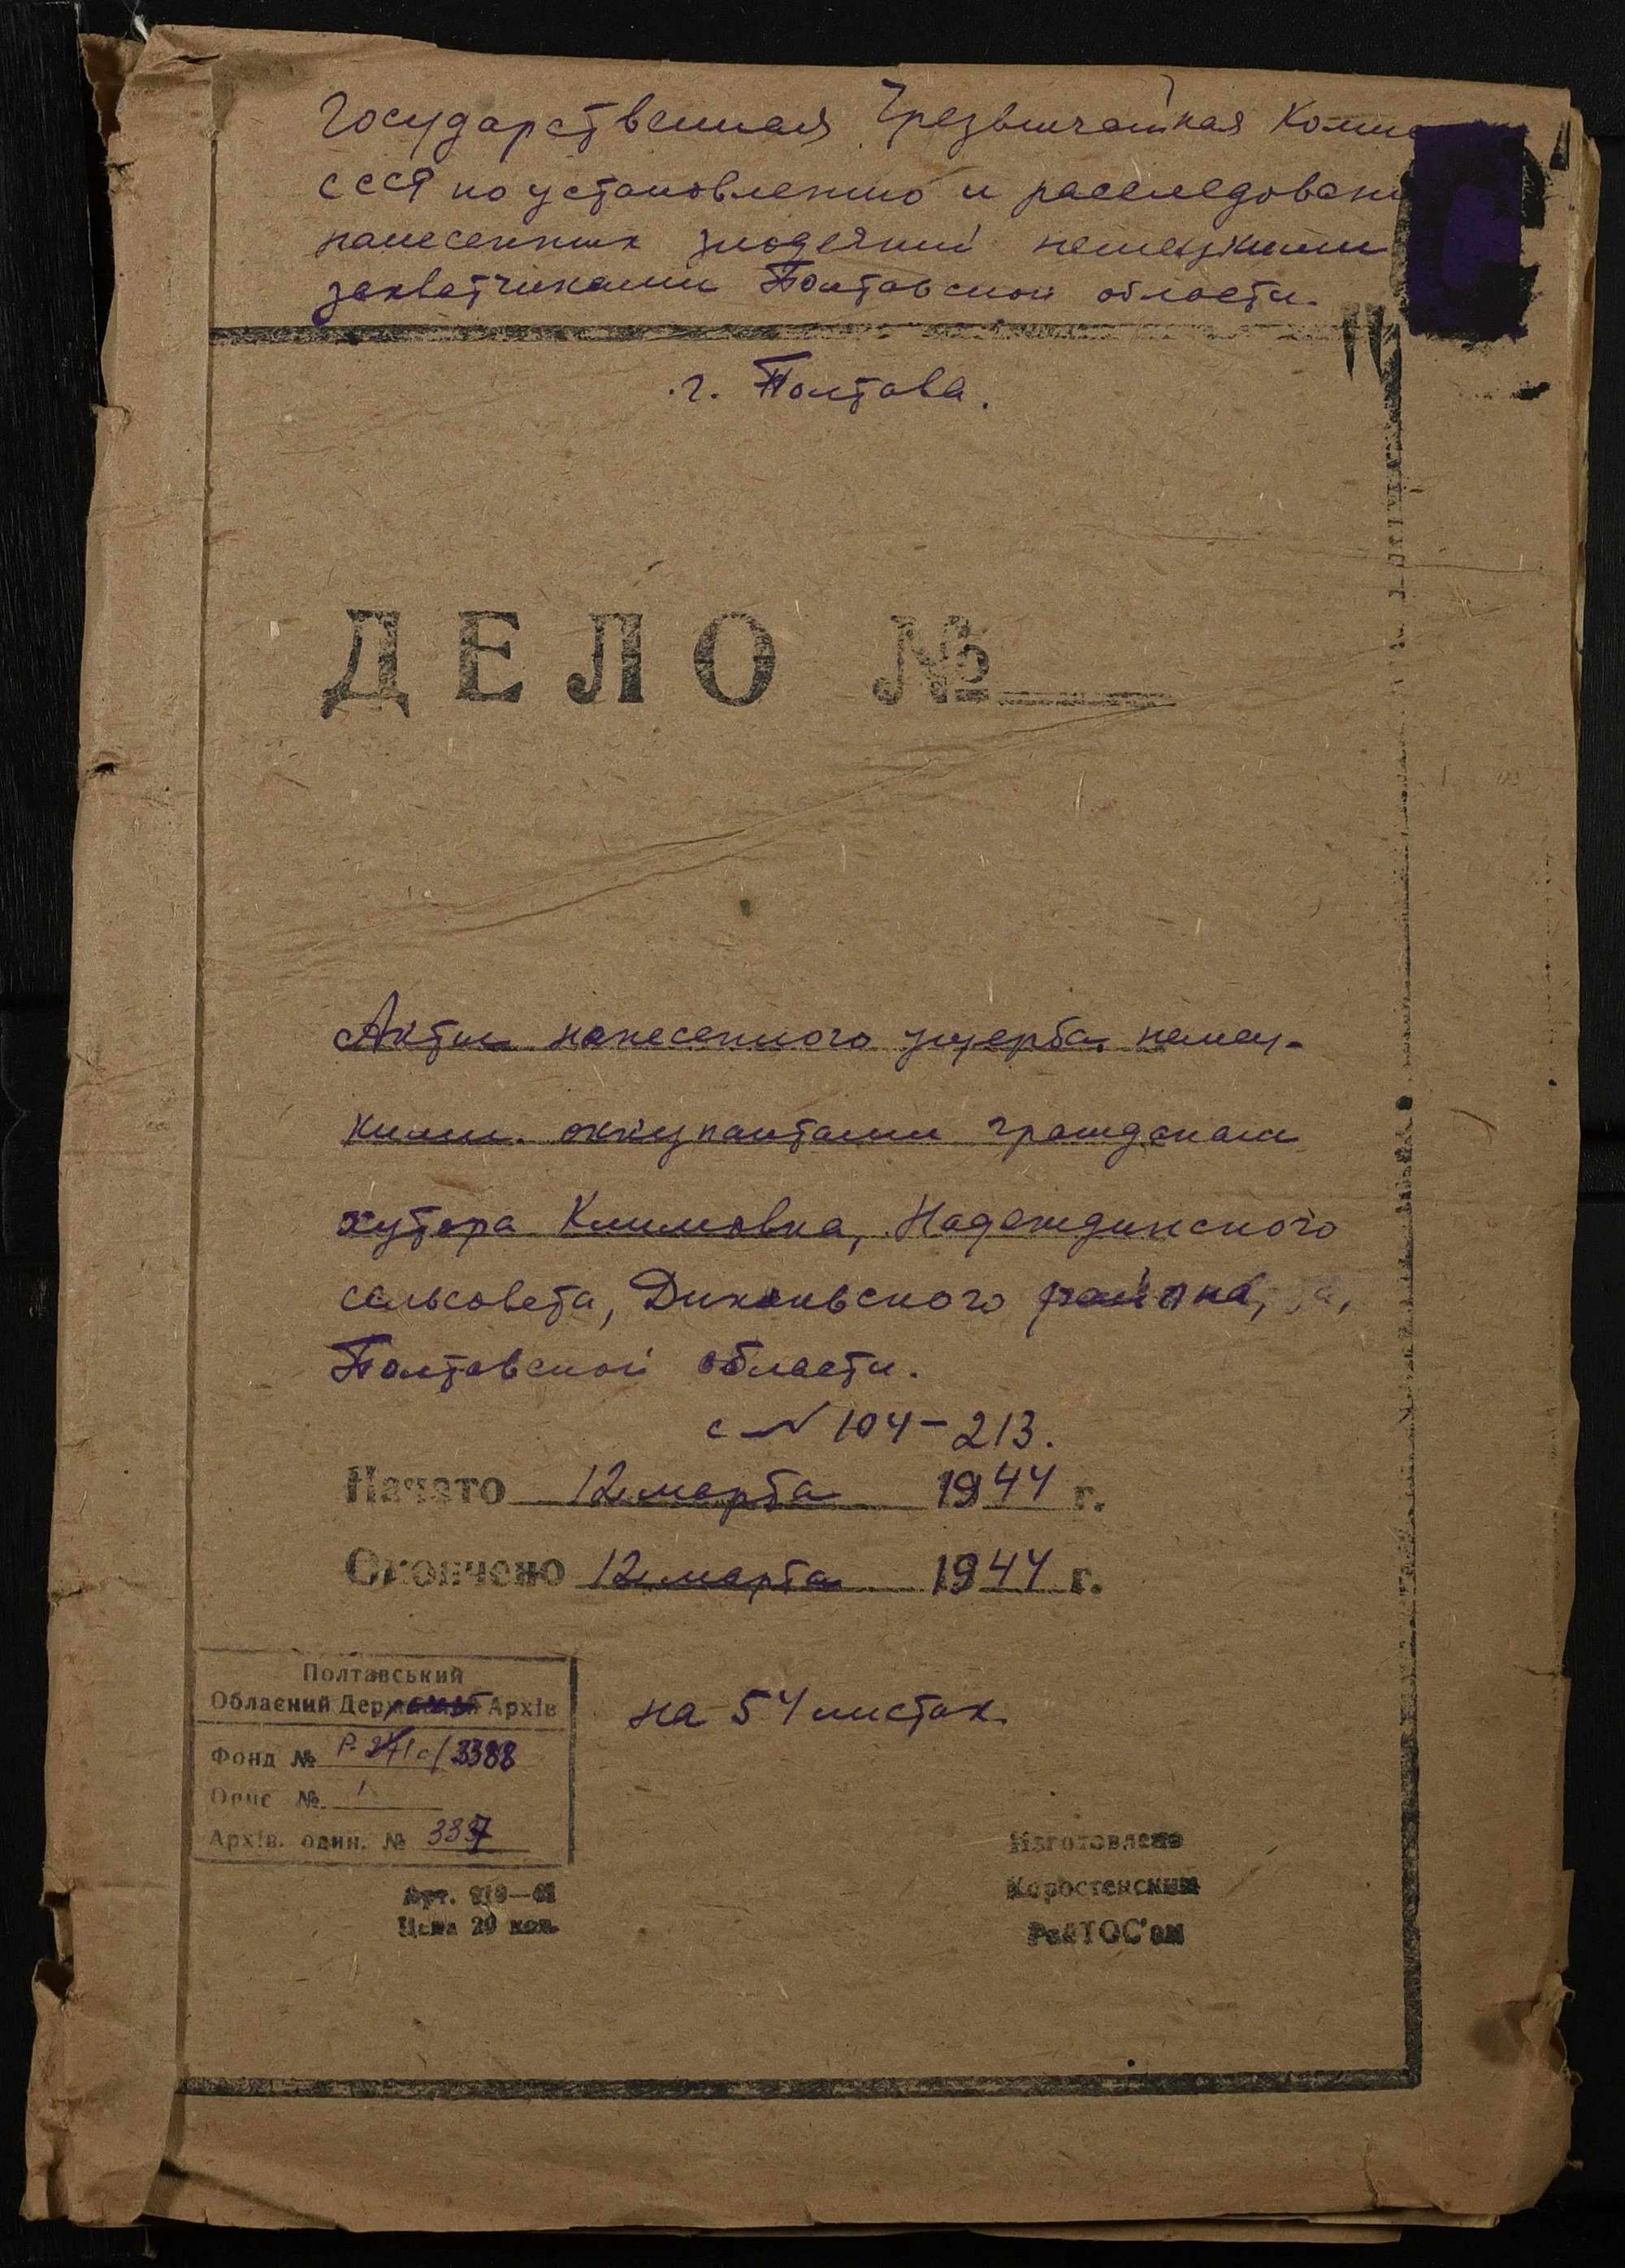 Государственная Чрезвычайная Комис
СССР по установлению и расследовани
нанесенных злодеяний немецкими
захватчиками Полтавской области.
г. Полтава.
ДЕЛО №
Акты нанесенного ущерба немец-
кими оккупантами гражданам
хутора Климовка, Надеждинского
сельсовета, Диканьского района,
Полтавской области.
с № 104-213.
Начато 12 марта 1944 г.
Окончено 12 марта 1944 г.
на 54 листах.
Полтавський
Обласний Державний Архів
Фонд № Р- /3388
Опис № 1
Архів. один. № 337
Арт.
Цена 20 коп.
Изготовлено
Коростенским
РайТОС'ом